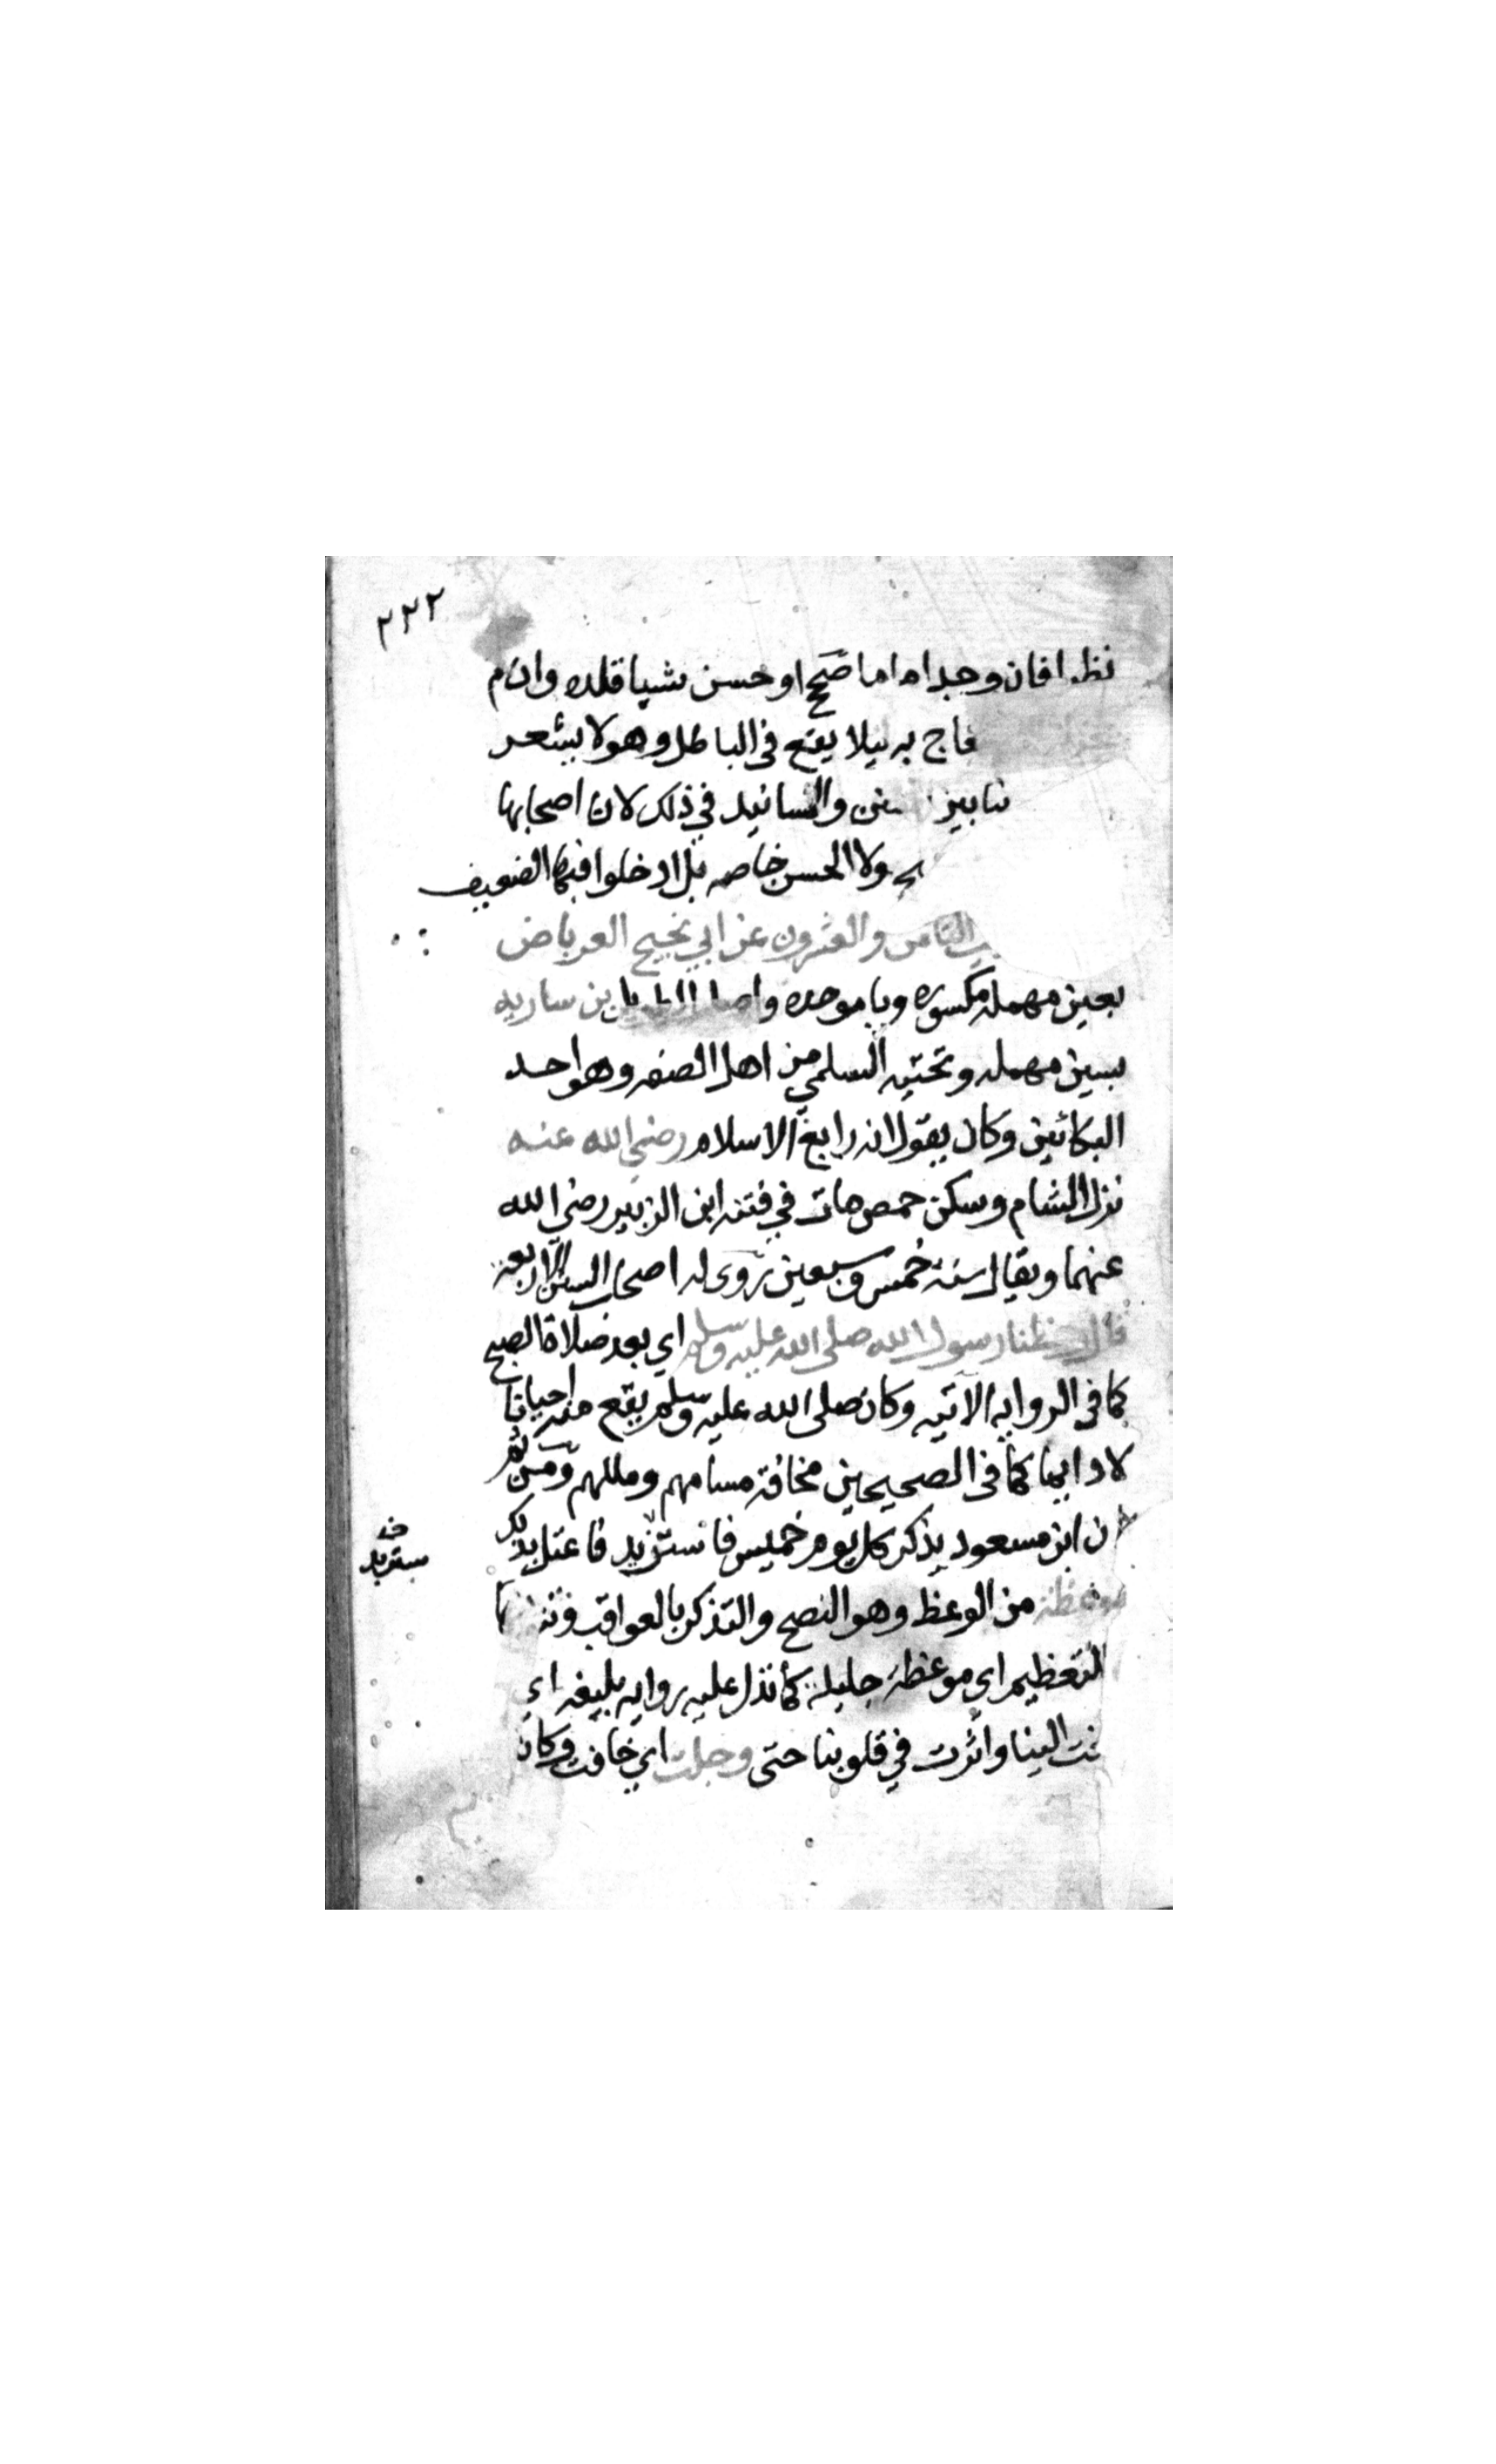 ٢٢٢
نظر افان وجد امه اما صحح او حسن شيا قلده وان م
بريلا يقع في الباطل وهو لا يشعر
والمسانيد في ذلك لان اصحابها
ولا الحسن خاصه بل ادخلوا فيها الضعيف
الثامن والعشرون عن ابي نجيح العرباض
بعين مهملة مكسوره وبا موحده بن ساريه
بسين مهمله وتحتيه السلمي من اهل الصفه وهو احد
البكائين وكان يقول انه رابع الاسلام رضي الله عنه
نزل الشام وسكن حمص مات في فتنه ابن الزبير رضي الله
عنهما ويقال سنة خمس وسبعين روى له اصحاب السنن الاربعه
قال وعظنا رسول الله صلى الله عليه وسلم اي بعد صلاة الصبح
كما في الروايه الاتيه وكان صلى الله عليه وسلم يقع منه احيانا
لا دايما كما في الصحيحين مخافة سامهم ومللهم ومن ثم
ابن مسعود يذكر كل يوم خميس فاستزيد فاعتل بذلك
خ
ستزيد
موعظة من الوعظ وهو النصح والتذكر بالعواقب
التعظيم اي موعظة جليلة كما تدل عليه روايه بليغه اي
الينا واثرت في قلوبنا حتى وجلت اي خافت وكان